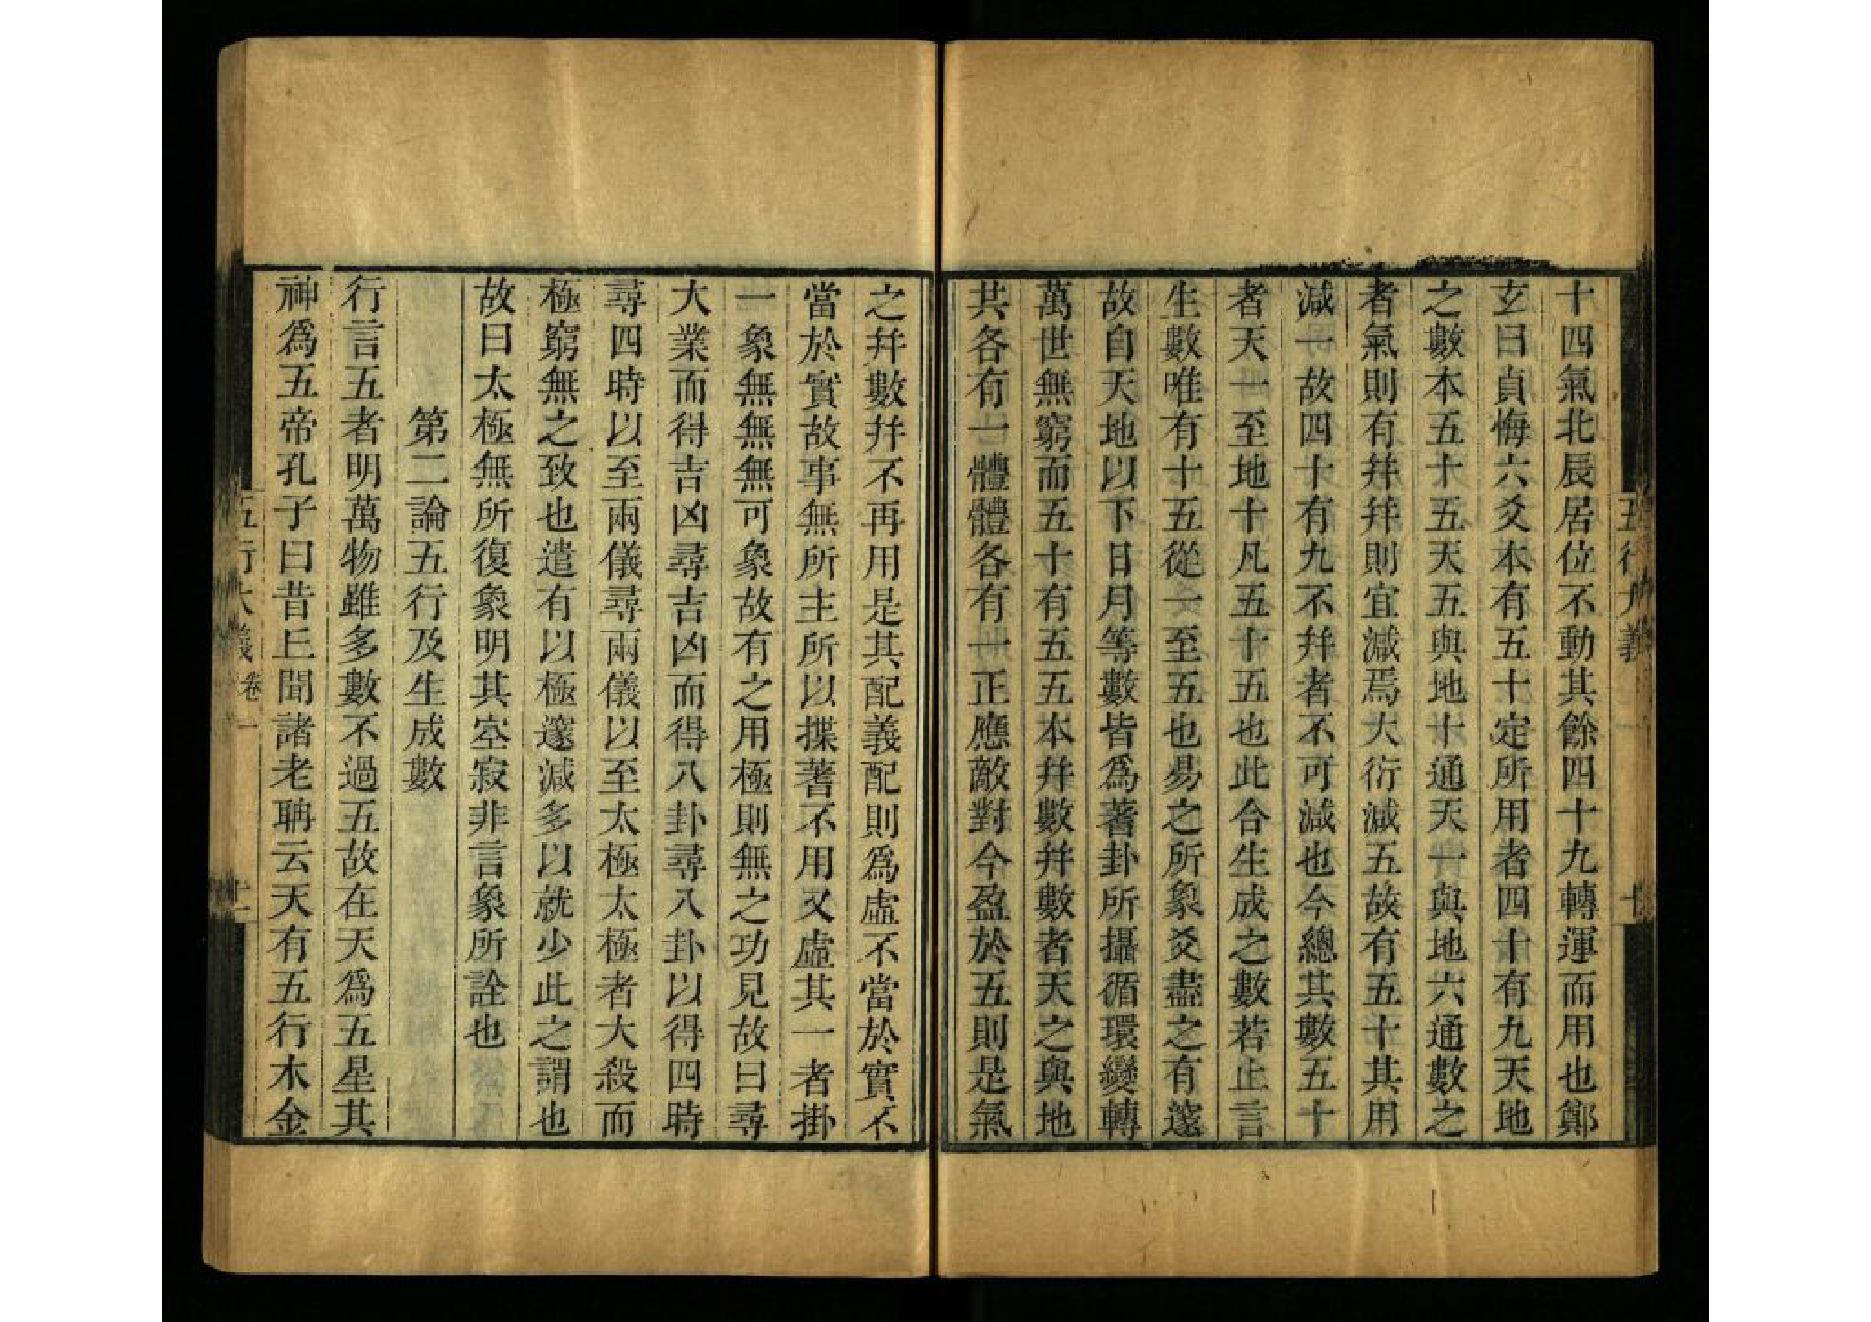 十四氣北辰居位不動其餘四十九轉運而用也鄭
玄曰貞悔六爻本有五十定所用者四十有九天地
之數本五十五天五與地十通天一與地六通數之
者氣則有幷幷則宜減焉大衍減五故有五十其用
減一故四十有九不幷者不可減也今總其數五十
者天一至地十凡五十五也此合生成之數若止言
生數唯有十五從一至五也易之所象爻盡之有邃
故自天地以下日月等數皆爲蓍卦所攝循環變轉
萬世無窮而五十有五五本幷數幷數者天之與地
共各有一體體各有一正應敵對今盈於五則是氣
五行大義
十
之幷數幷不再用是其配義配則爲虛不當於實不
當於實故事無所主所以揲蓍不用又虛其一者掛
一象無無無可象故有之用極則無之功見故曰尋
大業而得吉凶尋吉凶而得八卦尋八卦以得四時
尋四時以至兩儀尋兩儀以至太極太極者大殺而
極窮無之致也遣有以極邃減多以就少此之謂也
故曰太極無所復象明其空寂非言象所詮也
第二論五行及生成數
行言五者明萬物雖多數不過五故在天爲五星其
神爲五帝孔子曰昔丘聞諸老聃云天有五行木金
五行大義 卷一